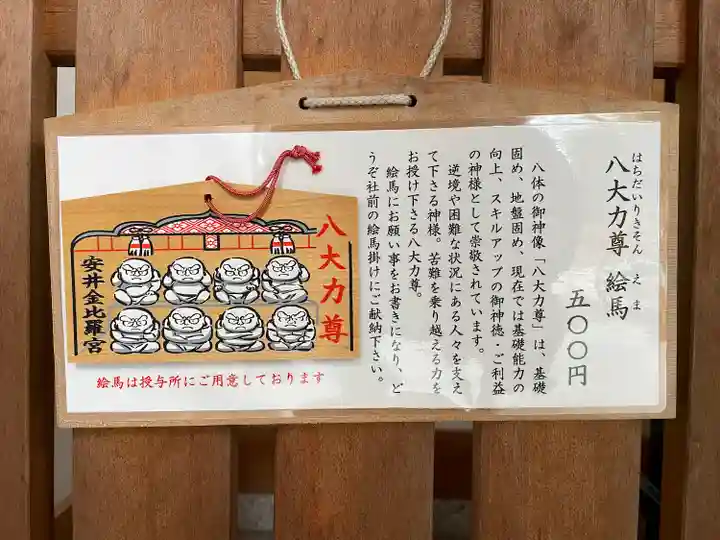 はちだいりきそん えま
八大力尊 絵馬
五〇〇円
八体の御神像「八大力尊」は、基礎
固め、地盤固め、現在では基礎能力の
向上、スキルアップの御神徳・ご利益
の神様として崇敬されています。
逆境や困難な状況にある人々を支え
て下さる神様。苦難を乗り越える力を
お授け下さる八大力尊。
絵馬にお願い事をお書きになり、ど
うぞ社前の絵馬掛けにご献納下さい。
八大力尊
安井金比羅宮
絵馬は授与所にご用意しております